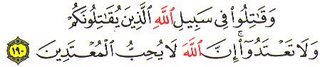 وَقَٰتِلُوا۟ فِى سَبِيلِ ٱللَّهِ ٱلَّذِينَ يُقَٰتِلُونَكُمْ
وَلَا تَعْتَدُوٓا۟ ۚ إِنَّ ٱللَّهَ لَا يُحِبُّ ٱلْمُعْتَدِينَ ١٩٠